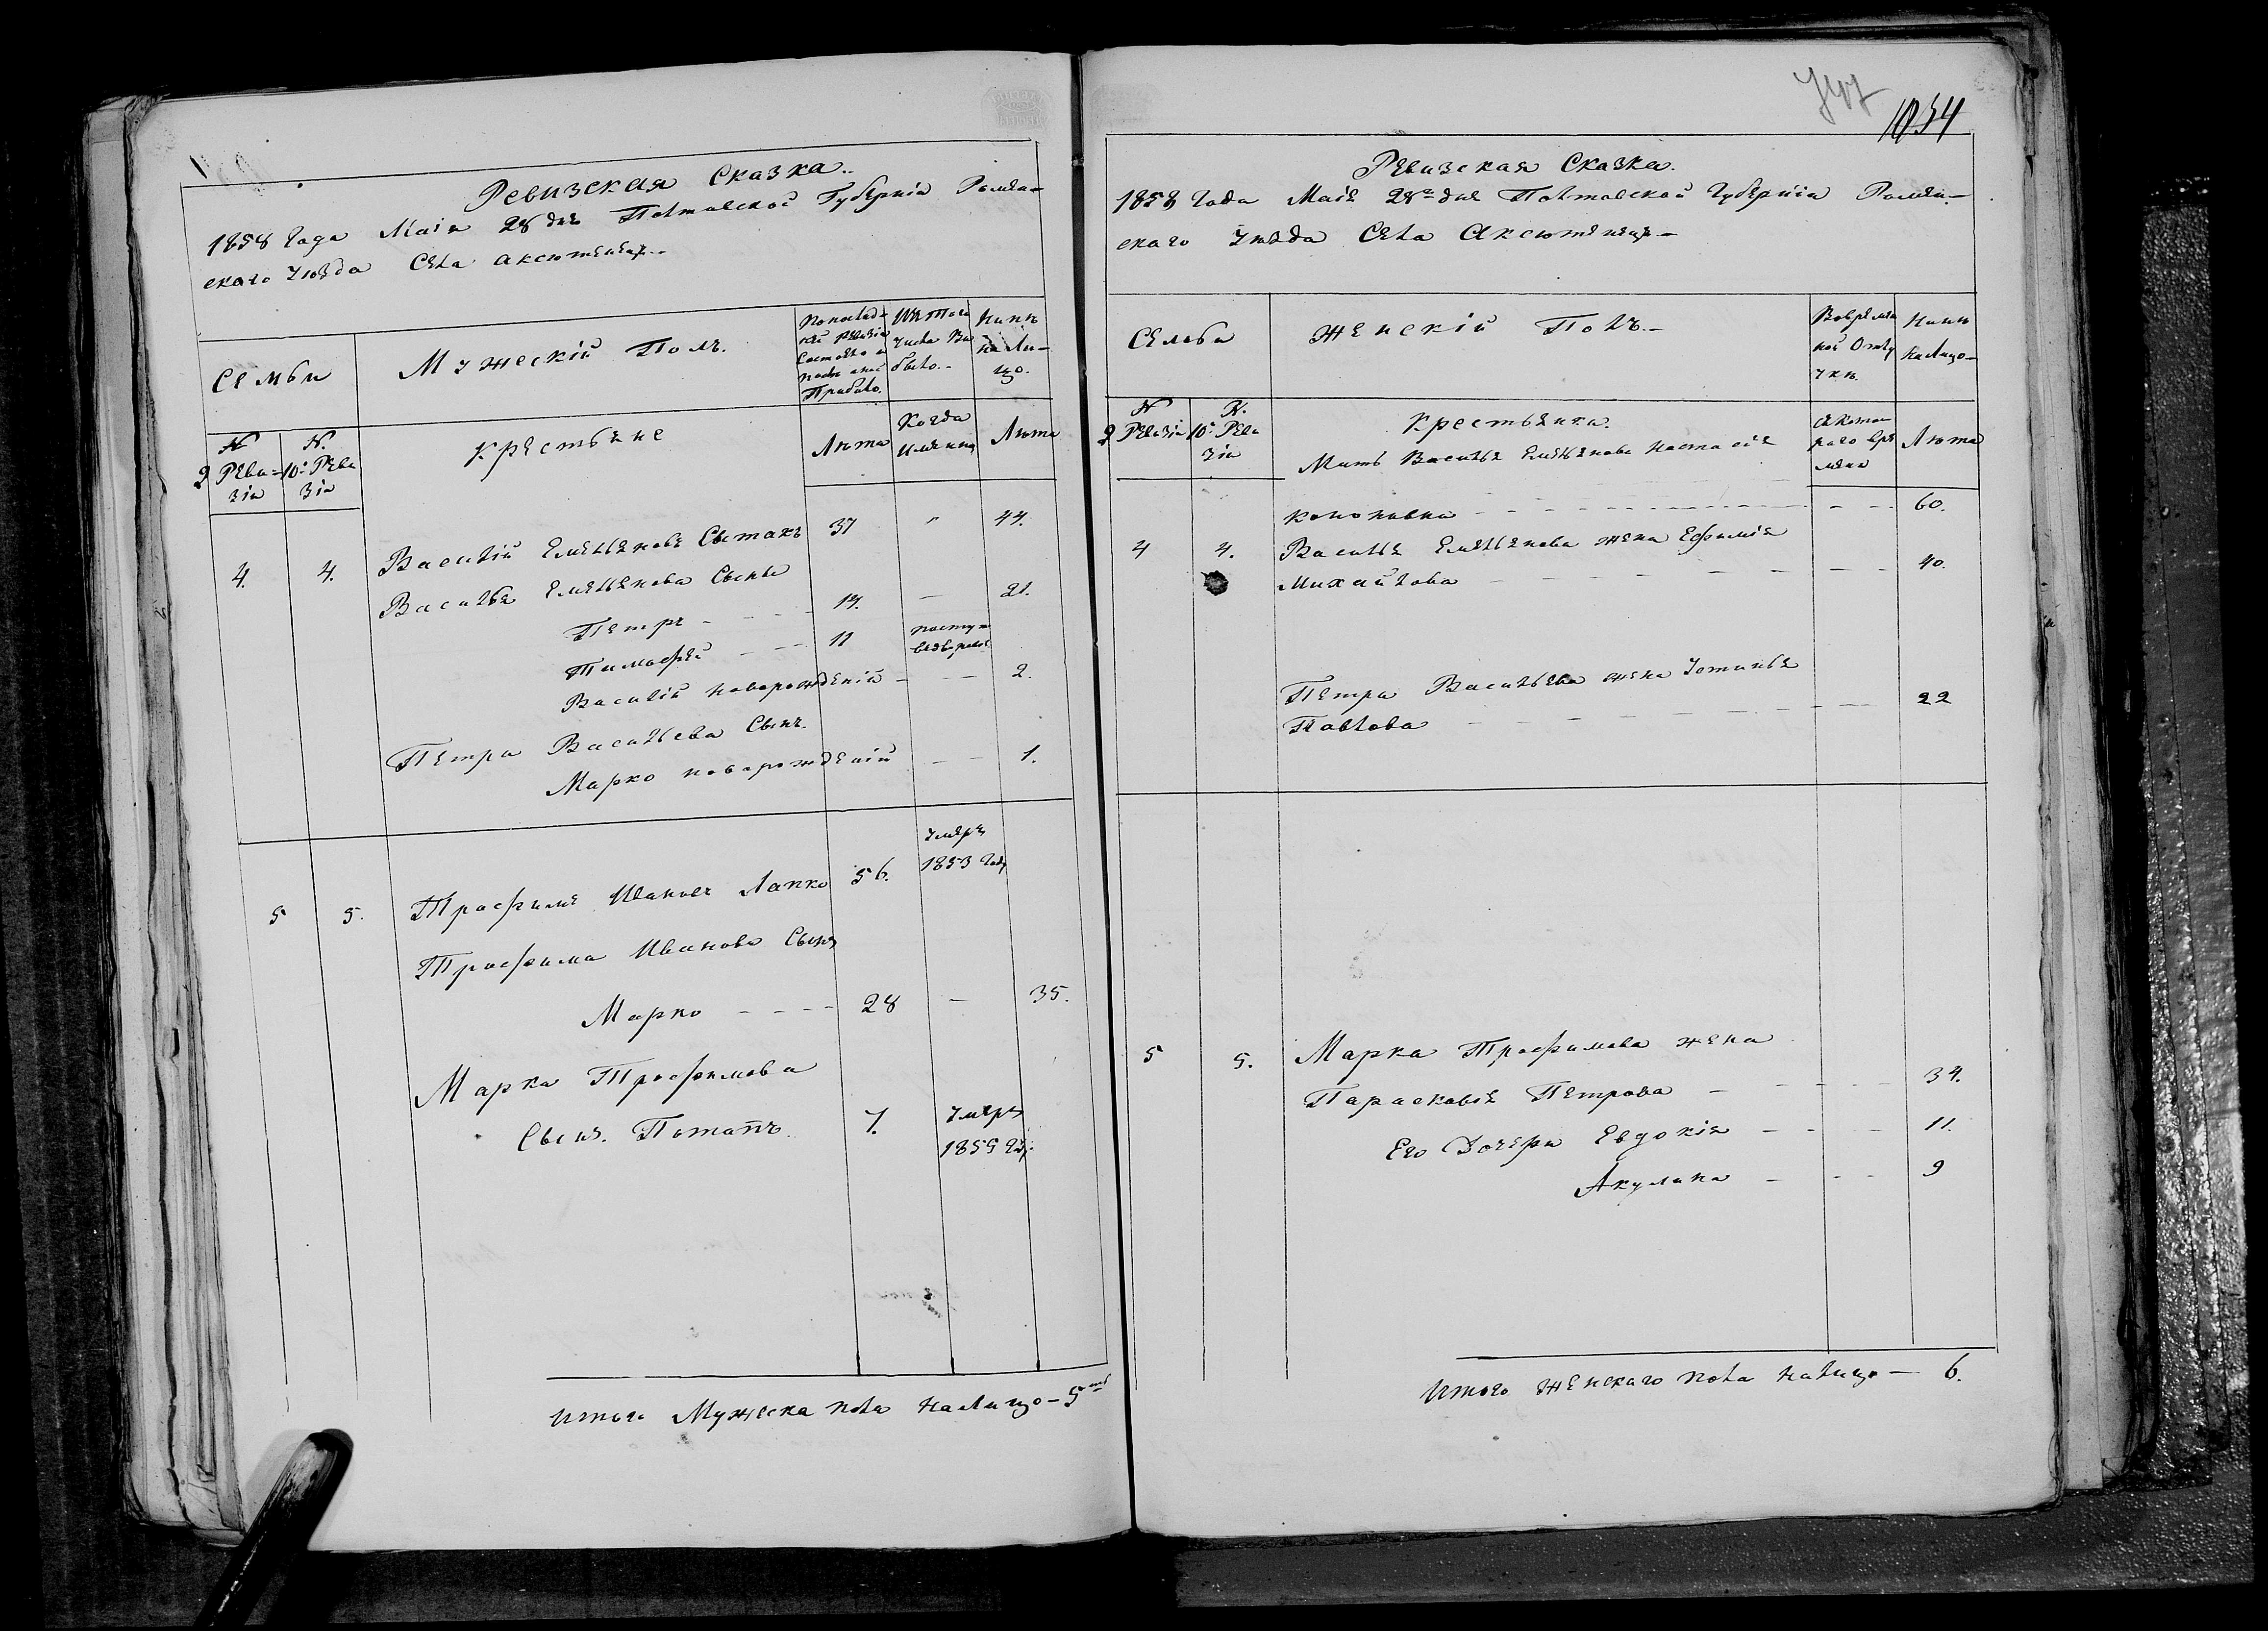 Ревизская Сказка.
1858 Года Маія 28 дня Полтавской Губерніи Ромен-
скаго Уѣзда Села Аксютинецъ.
Семьи
Мужескій Полъ.
По послед-
ней Ревизіи
Состояло и
после оной
Прибыло.
Изъ того
числа Вы
было.
Нынѣ
на Ли-
цо.
№
9 Реви-
зіи
№.
10й Реви
зіи
Крестьяне
Лѣта
Когда
Имянно
Лѣта
4. 4. Василій Емельяновъ Сытакъ 37 " 44.
Василья Емельянова Сыны
Петръ - - - 14. — 21.
Тимофей - - - 11
Василій новорожденій - - - 2.
Петра Васильева Сынъ.
Марко новорожденій - - 1.
5 5. Трофимъ Ивановъ Лапко 56. Умеръ
1853 Году
Трофима Иванова Сынъ
Марко - - - - 28 — 35.
Марка Трофимова
Сынъ. Потапъ 7. Умеръ
1855 Году
Итого Мужеска пола на Лицо - 5ть
747
1034
Ревизская Сказка.
1858 Года Маія 28го дня Полтавской Губерніи Ромен-
скаго Уѣзда Села Аксютинецъ -
Семьи
Женскій Полъ. -
Вовремен
ной Отлу
чкѣ.
Нынѣ
на Лицо -
№
9 Ревизіи
№.
10й Реви
зіи
Крестьянки.
Съ Кото-
раго Вре
мени
Лѣта
Мать Василья Емельянова Настасія
Кононовна - - - 60.
4 4. Василья Емельянова жена Ефимія
Михайлова - - - 40.
Петра Васильева жена Устинья
Павлова - - - 22
5 5. Марка Трофимова жена
Парасковія Петрова - - - 34.
Его Дочери Евдокія - - - 11.
Акулина - - - 9
Итого Женскаго пола налицо - 6.